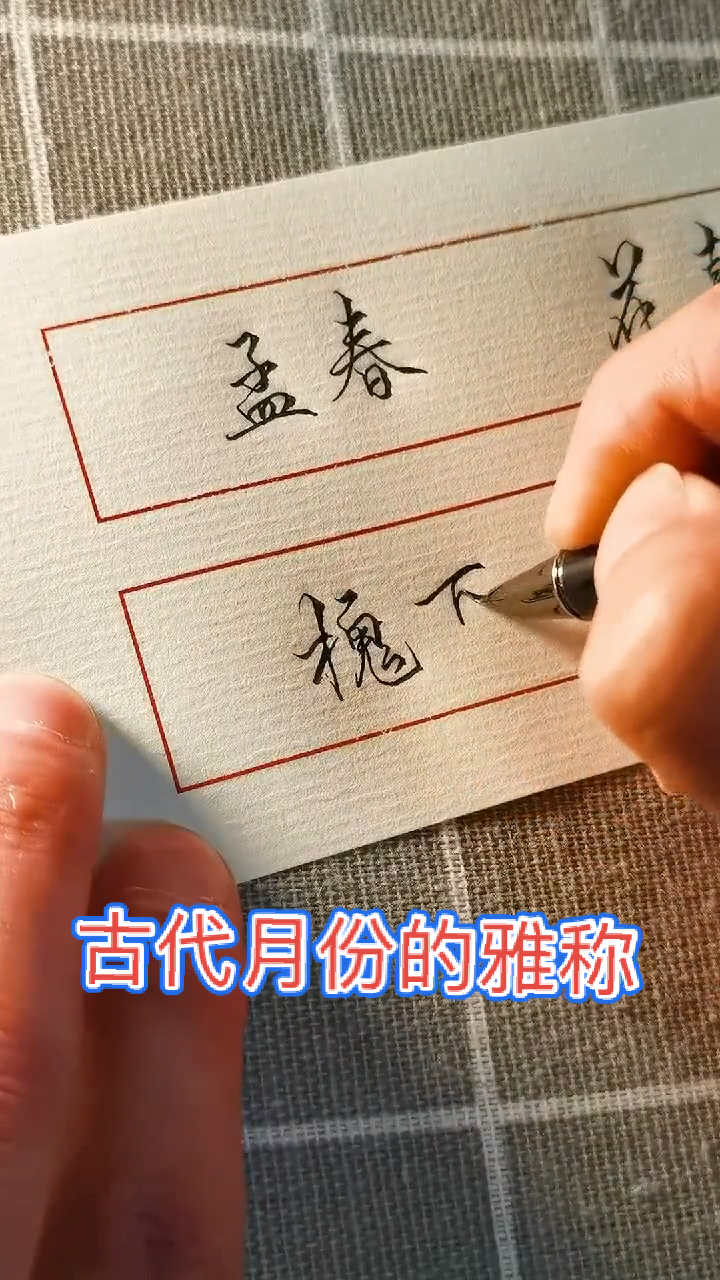 孟春 花
槐
古代月份的雅称